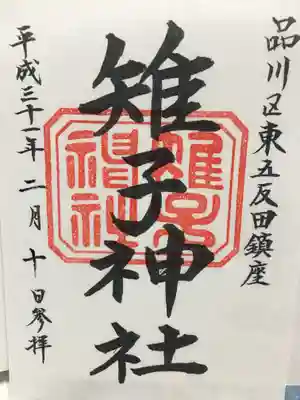 品川区東五反田鎮座
雉子神社
平成三十一年二月十日参拝